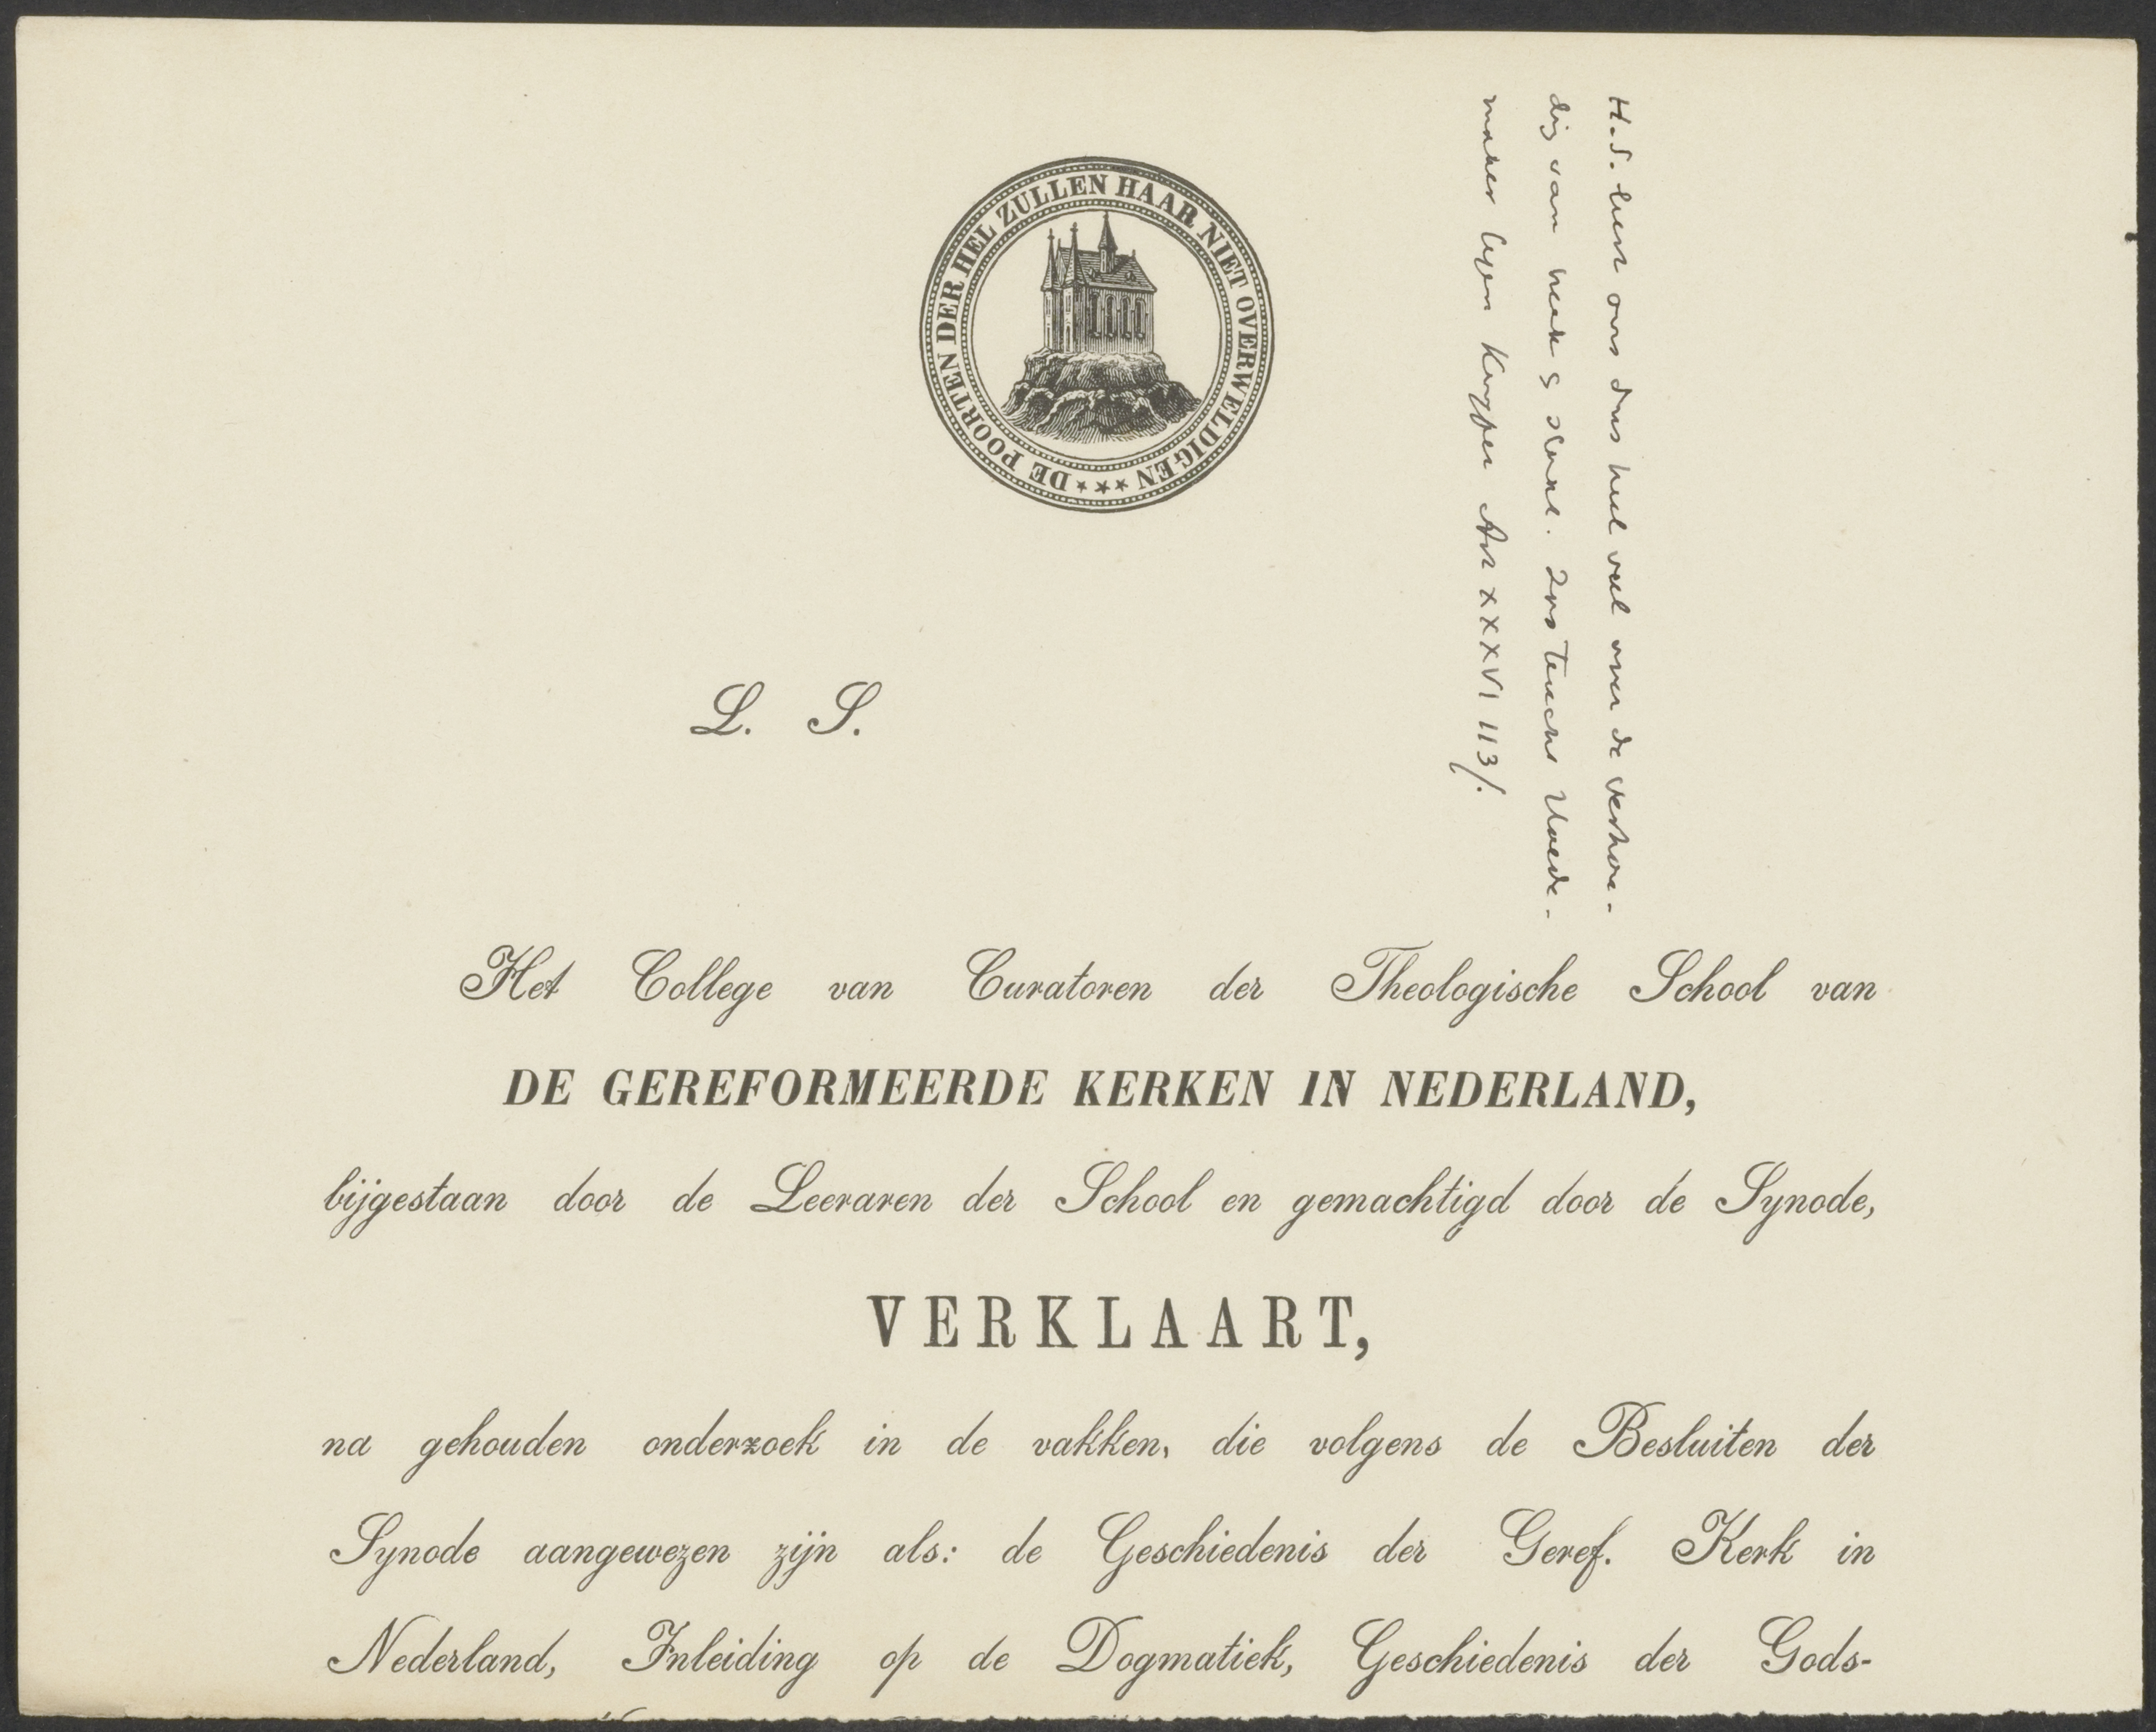 DE POORTEN DER HEL ZULLEN HAAR NIET OVERWELDIGEN
H.S. ons dus heel veel over de verhou-
dig van kerk & Zoo Hoede-
maker tegen Kuyper Art XXXVI 113/.
L. S.
Het College van Curatoren der Theologische School van
DE GEREFORMEERDE KERKEN IN NEDERLAND,
bijgestaan door de Leeraren der School en gemachtigd door de Synode,
VERKLAART,
na gehouden onderzoek in de vakken, die volgens de Besluiten der
Synode aangewezen zijn als: de Geschiedenis der Geref. Kerk in
Nederland, Inleiding op de Dogmatiek, Geschiedenis der Gods-